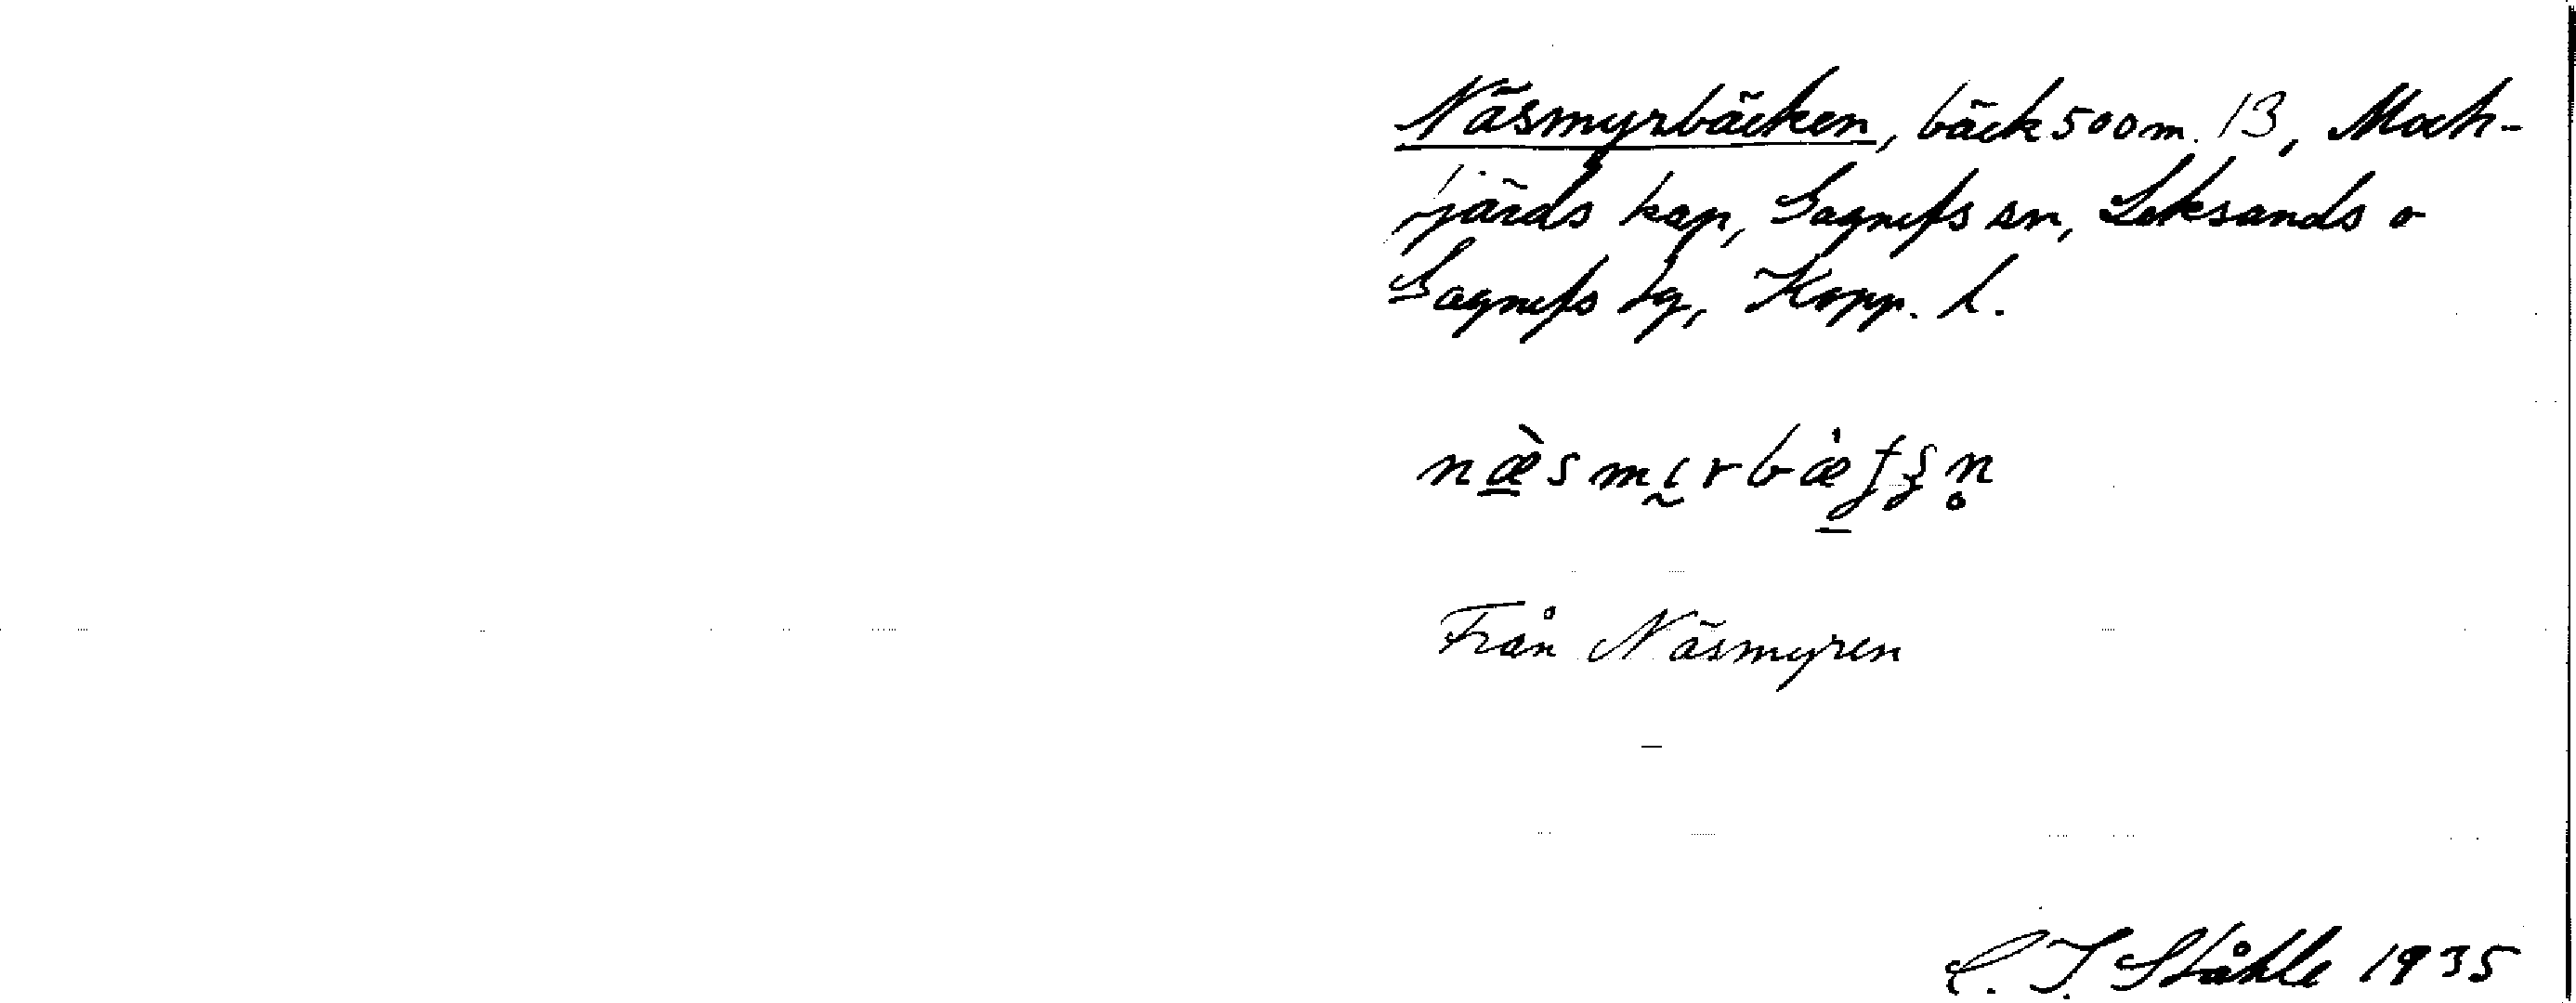 Näsmyrbäcken, bäck 500 m. 13, Mock-
fjärds kap, Gagnefs sn, Leksands o
Gagnefs tg, Kopp. l.
Från Näsmyren
C. I. Ståhle 1935